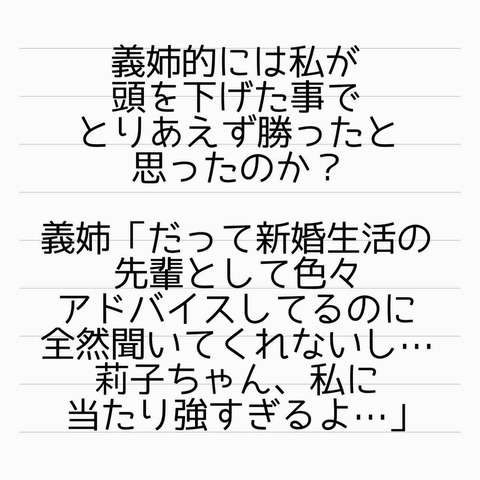 義姉的には私が
頭を下げた事で
とりあえず勝ったと
思ったのか？
義姉「だって新婚生活の
先輩として色々
アドバイスしてるのに
全然聞いてくれないし…
莉子ちゃん、私に
当たり強すぎるよ…」